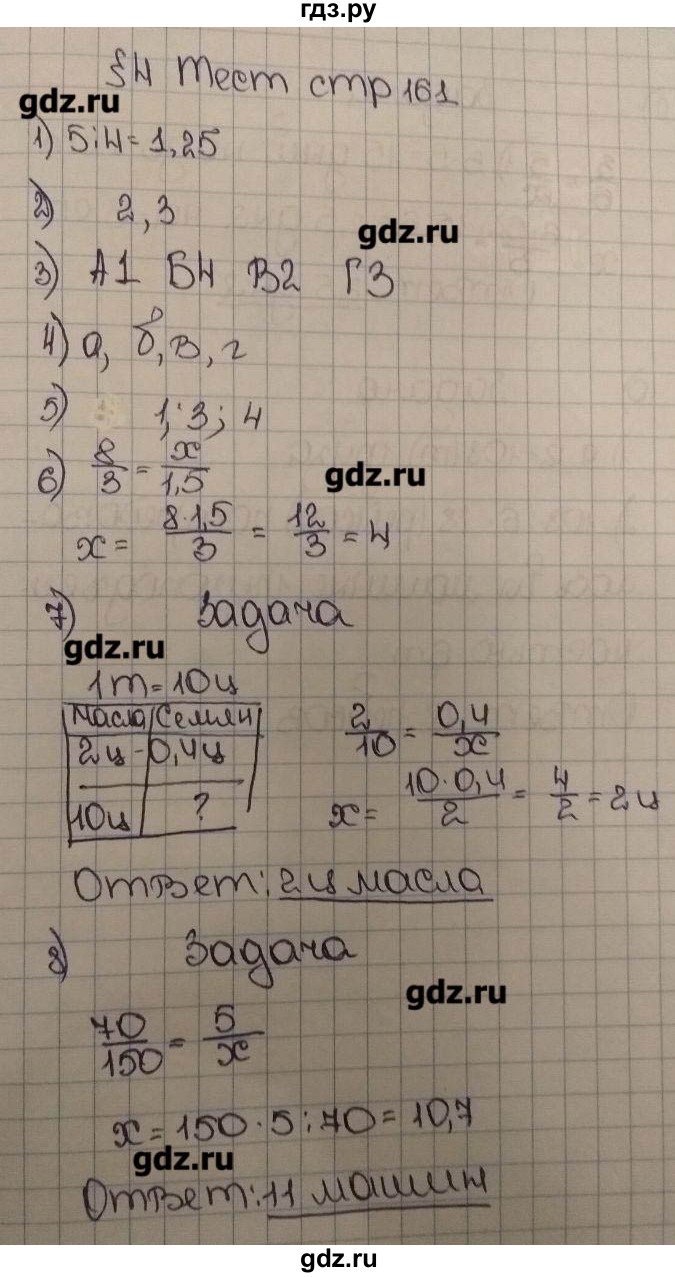 гдз.ру
§4 тест стр 161
gdz.ru
1) 5:4=1,25
2) 2,3
gdz.ru
3) А1 Б4 В2 Г3
4) а, б, в, г
5) 1; 3; 4
6) 8/3 = x/1,5
gdz.ru
x = 8·1,5/3 = 12/3 = 4
7) Задача
gdz.ru
1т=10ц
Масла Семян
2ц - 0,4ц
10ц ?
2/10 = 0,4/x
x = 10·0,4/2 = 4/2 = 2ц
Ответ: 2ц масла
8) Задача
gdz.ru
70/150 = 5/x
x = 150·5:70=10,7
gdz.ru
Ответ: 11 машин
gdz.ru